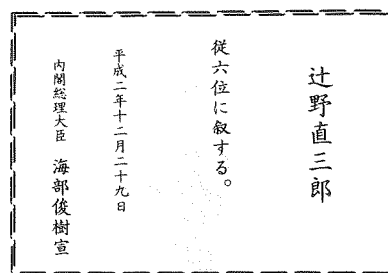 辻野直三郎
従六位に叙する。
平成二年十二月二十九日
内閣総理大臣　海部俊樹宣